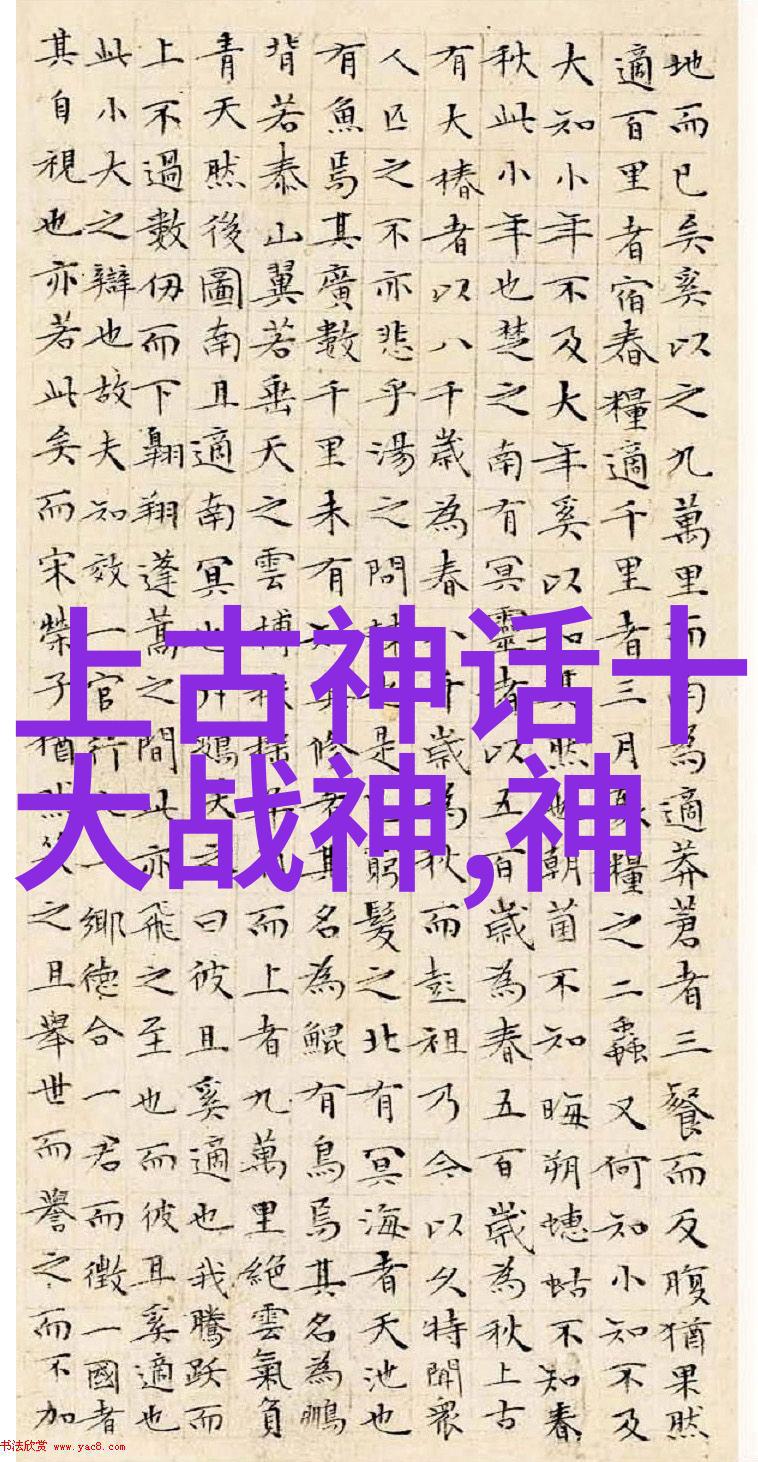 地而已矣奚以之九萬里而南為適莽蒼者三餐而反腹猶果然
適百里者宿舂糧適千里者三月聚糧之二蟲又何知小知不及
大知小年不及大年奚以知其然也朝菌不知晦朔蟪蛄不知春
秋此小年也楚之南有冥靈者以五百歲為春五百歲為秋上古
有大椿者以八千歲為春八千歲為秋而彭祖乃今以久特聞眾
人匹之不亦悲乎湯之問棘也是窮髮之北有冥海者天池也
有魚焉其廣數千里未有知其修者其名為鯤有鳥焉其名為鵬
背若泰山翼若垂天之雲摶扶搖羊而上者九萬里絕雲氣負
青天然後圖南且適南冥也斥鴳笑之曰彼且奚適也我騰躍而
上不過數仞而下翱翔蓬蒿之間此亦飛之至也而彼且奚適也
此小大之辯也故夫知效一官行一鄉德合一君而徵一國者
其自視也亦若此矣而宋榮子猶然笑之且舉世而譽之而不加
上古神话十
大战神,神
书法欣赏 www.yac8.com